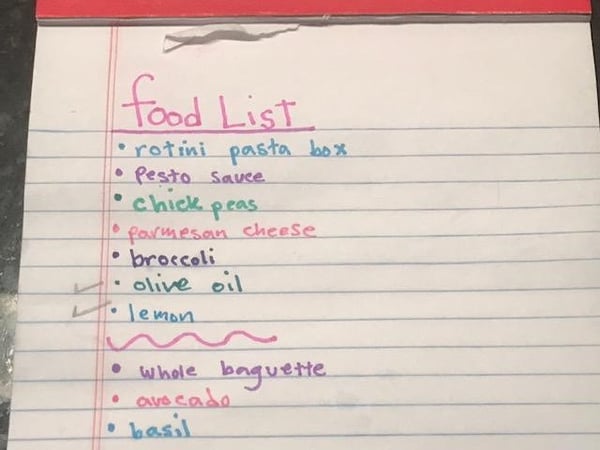 food List
• rotini pasta box
• Pesto sauce
• chick peas
• parmesan cheese
• broccoli
• olive oil
• lemon
• whole baguette
• avocado
• basil